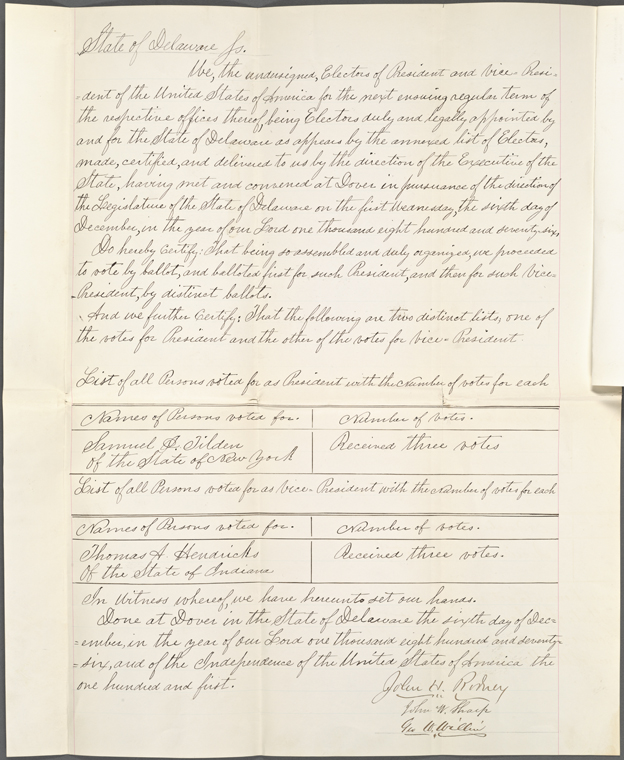 State of Delaware Ss.
We, the undersigned, Electors of President and Vice-Presi-
-dent of the United States of America for the next ensuing regular term of
the respective offices thereof, being Electors duly and legally appointed by
and for the State of Delaware as appears by the annexed list of Electors,
made, certified, and delivered to us by the direction of the Executive of the
State, having met and convened at Dover in pursuance of the direction of
the Legislature of the State of Delaware on the first Wednesday, the sixth day of
December, in the year of our Lord one thousand eight hundred and seventy-six,
Do hereby Certify: That being so assembled and duly organized, we proceeded
to vote by ballot, and balloted first for such President, and then for such Vice-
-President, by distinct ballots.
And we further Certify: That the following are two distinct lists, one of
the votes for President and the other of the votes for Vice-President.
List of all Persons voted for as President with the Number of votes for each
Names of Persons voted for. Number of votes.
Samuel J. Tilden Received three votes
of the State of New York
List of all Persons voted for as Vice-President with the Number of votes for each
Names of Persons voted for. Number of votes.
Thomas A Hendricks Received three votes.
Of the State of Indiana
In Witness whereof, we have hereunto set our hands.
Done at Dover in the State of Delaware the sixth day of Dec-
-ember, in the year of our Lord one thousand eight hundred and seventy-
-six, and of the Independence of the United States of America the
one hundred and first.
John H. Rodney
John W. Sharp
Geo. W. Willin